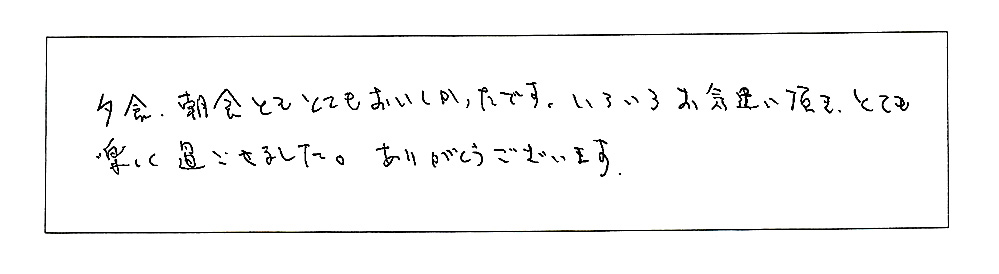 夕食、朝食ともとてもおいしかったです。いろいろお気遣い頂き、とても
楽しく過ごせました。ありがとうございます。